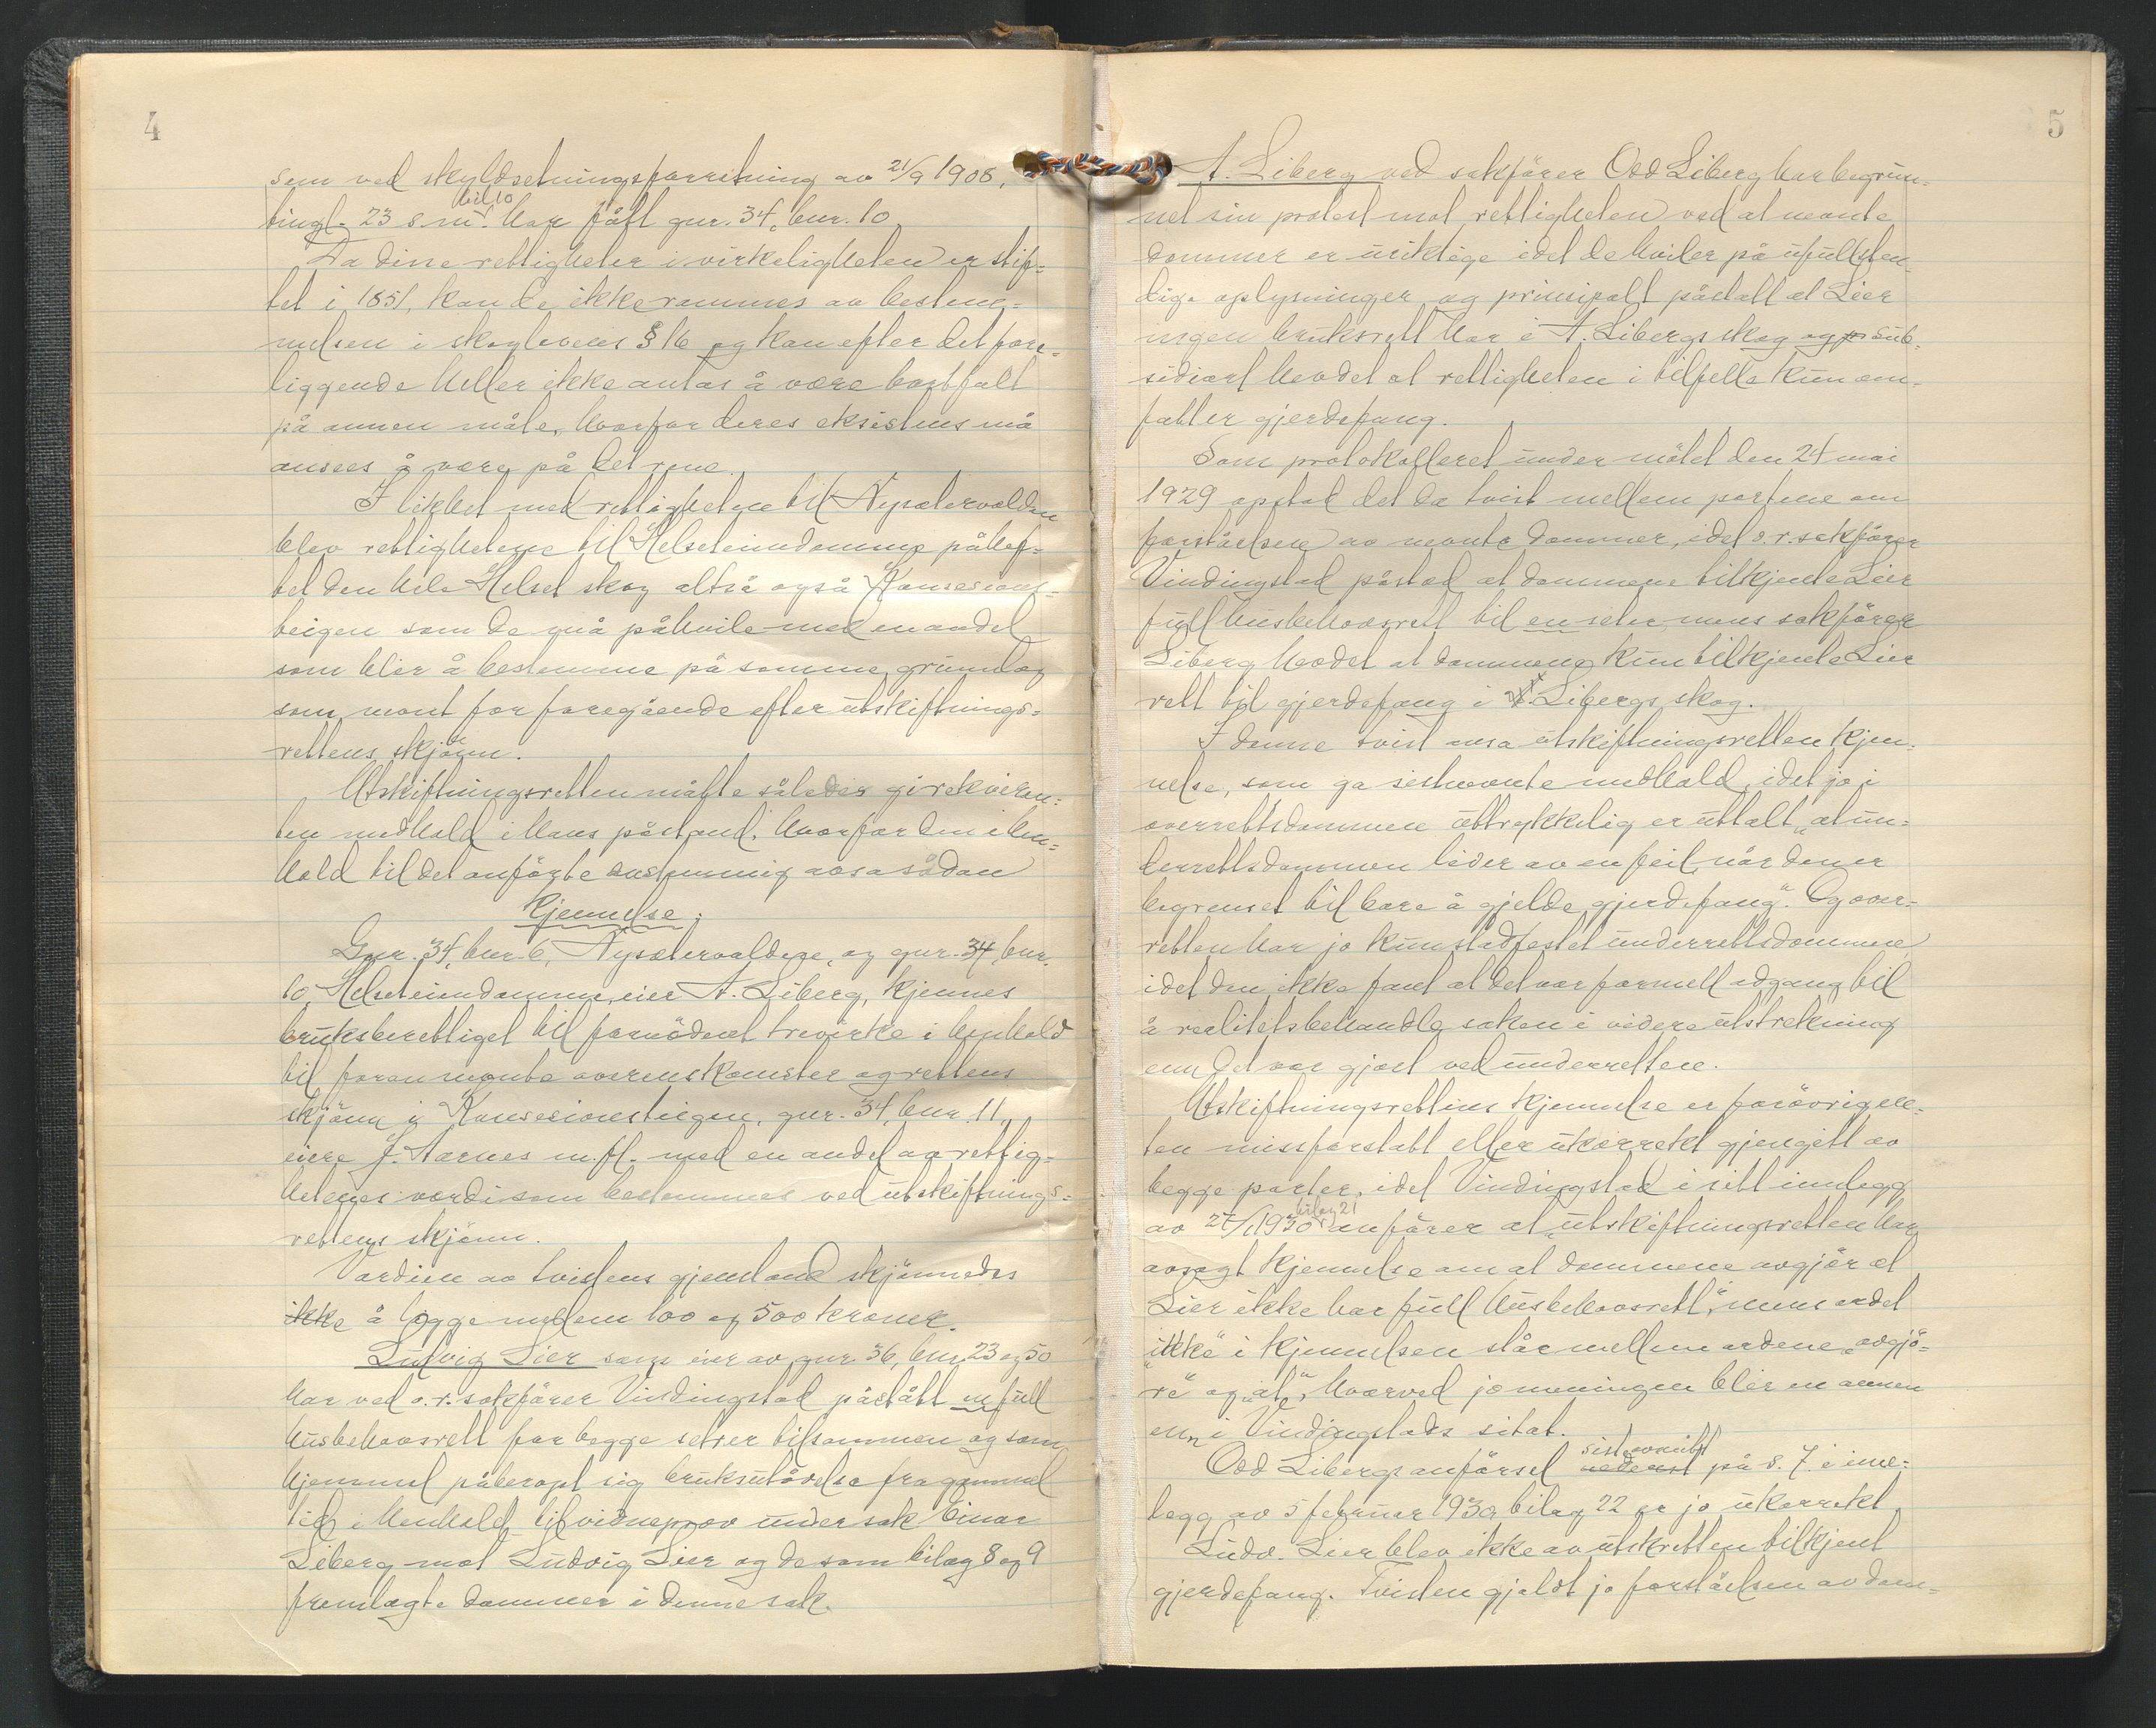 4
som ved skyldsetningsforretning av 21/9 1908,
bil 10
tingl. 23 s. m. har fått gnr. 34, bnr. 10
Da disse rettigheter i virkeligheten er stif-
tet i 1851, kan de ikke rammes av bestem-
melsen i skoglovens § 16 og kan efter det fore-
liggende heller ikke antas å være bortfalt
på annen måte, hvorfor deres eksistens må
ansees å være på det rene.
I likhet med rettighetene til Nysætervolden
blev rettighetene til Helseteiendommene påhef-
tet den hele Helset skog altså også Konsesions-
teigen som de må påhvile med en andel
som blir å bestemme på samme grunnlag
som nevnt for foregående efter utskiftnings-
rettens skjønn.
Utskiftningsretten måtte således gi rekviren-
ten medhold i hans påstand, hvorfor den i hen-
hold til det anførte enstemmig avsa sådan
Kjennelse:
Gnr. 34, bnr. 6, Nysætervoldene, og gnr. 34, bnr.
10, Helseteiendommen, eier A. Liberg, kjennes
bruksberettiget til fornödent trevirke i henhold
til foran nevnte overenskomster og rettens
skjönn i Konsesionsteigen, gnr. 34, bnr. 11,
eiere J. Aarnes m. fl. med en andel av rettig-
hetenes verdi som bestemmes ved utskiftnings-
rettens skjönn.
Verdien av tvistens gjenstand skjönnedes
ikke å ligge mellem 100 og 500 kroner.
Ludvig Lier som eier av gnr. 36, bnr. 23 og 50
har ved o. r. sakförer Vindingstad påstått en full
husbehovsrett for begge setrer tilsammen og som
hjemmel påberopt sig bruksutövelse fra gammel
tid i henhold til vidneprov under sak Einar
Liberg mot Ludvig Lier og de som bilag 8 og 9
fremlagte dommer i denne sak.
5
A. Liberg ved sakförer Odd Liberg har begrun-
net sin protest mot rettigheten ved at nevnte
dommer er uriktige idet de hviler på ufullsten-
dige oplysninger og principalt påstått at Lier
ingen bruksrett har i A. Libergs skog og sub-
sidiært hevdet at rettigheten i tilfelle kun om-
fatter gjerdefang.
Som protokolleret under mötet den 24 mai
1929 opstod det da tvist mellem partene om
forståelsen av nevnte dommer, idet o. r. sakförer
Vindingstad påstod at dommene tilkjente Lier
full husbehovsrett til en seter mens sakförer
Liberg hevdet at dommene kun tilkjente Lier
rett til gjerdefang i A. Libergs skog.
I denne tvist avsa utskiftningsretten kjen-
nelse, som ga sistnevnte medhold, idet jo i
overrettsdommen uttrykkelig er uttalt „at un-
derrettsdommen lider av en feil, når den er
begrenset til bare å gjelde gjerdefang". Og over-
retten har jo kun stadfestet underrettsdommen
idet den ikke fant at det var formell adgang til
å realitetsbehandle saken i videre utstrekning
enn det var gjort ved underretten.
Utskiftningsrettens kjennelse er forövrig en-
ten missforstått eller ukorrekt gjengitt av
begge parter, idet Vindingstad i sitt innlegg
bilag 21
av 27/1 1930 anförer at „utskiftningsretten har
avsagt kjennelse om at dommene avgjör at
Lier ikke har full husbehovsrett", mens ordet
„ikke" i kjennelsen står mellem ordene „avgjö-
re" og „at", hvorved jo meningen blir en annen
enn i Vindingstads sitat.
sistnevnte
Odd Libergs anförsel nederst på s. 7 i inn-
legg av 5 februar 1930, bilag 22 er jo ukorrekt.
Ludv. Lier blev ikke av utskretten tilkjent
gjerdefang. Tvisten gjaldt jo forståelsen av dom-